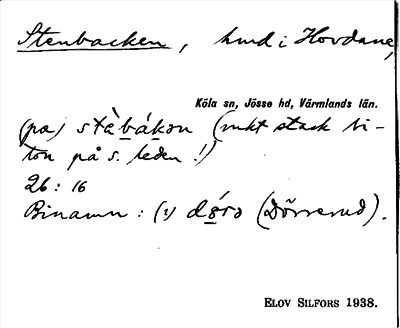 Stenbacken, hmd i Hovdane,
Köla sn, Jösse hd, Värmlands län.
(pa) stàbákon (mkt stark bi-
ton på s. leden!)
26: 16
Binamn: (i) dóro (Dörrerud).
ELOV SILFORS 1938.